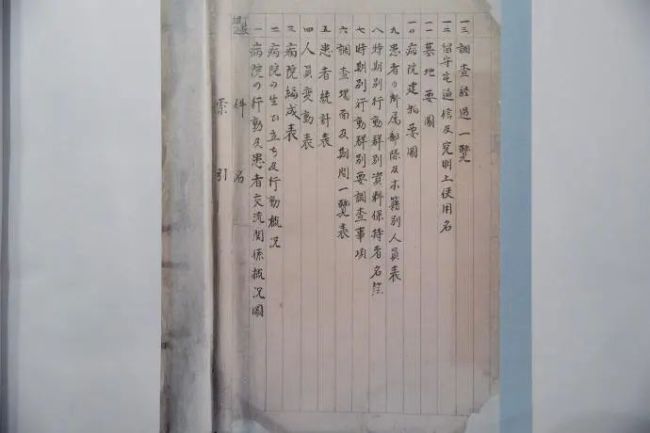 索引
件名
一 病院の行動及患者交流関係概況圖
二 病院の生ひ立ち及行動概況
三 病院編成表
四 人員変動表
五 患者統計表
六 調査場面及期間一覽表
七 時期別行動群別要調査事項
八 時期別行動群別資料保持者名簿
九 患者の所属部隊及本籍別人員表
一〇 病院建物要圖
一一 墓地要圖
一二 留守宅通信及究明上使用名
一三 調査経過一覽